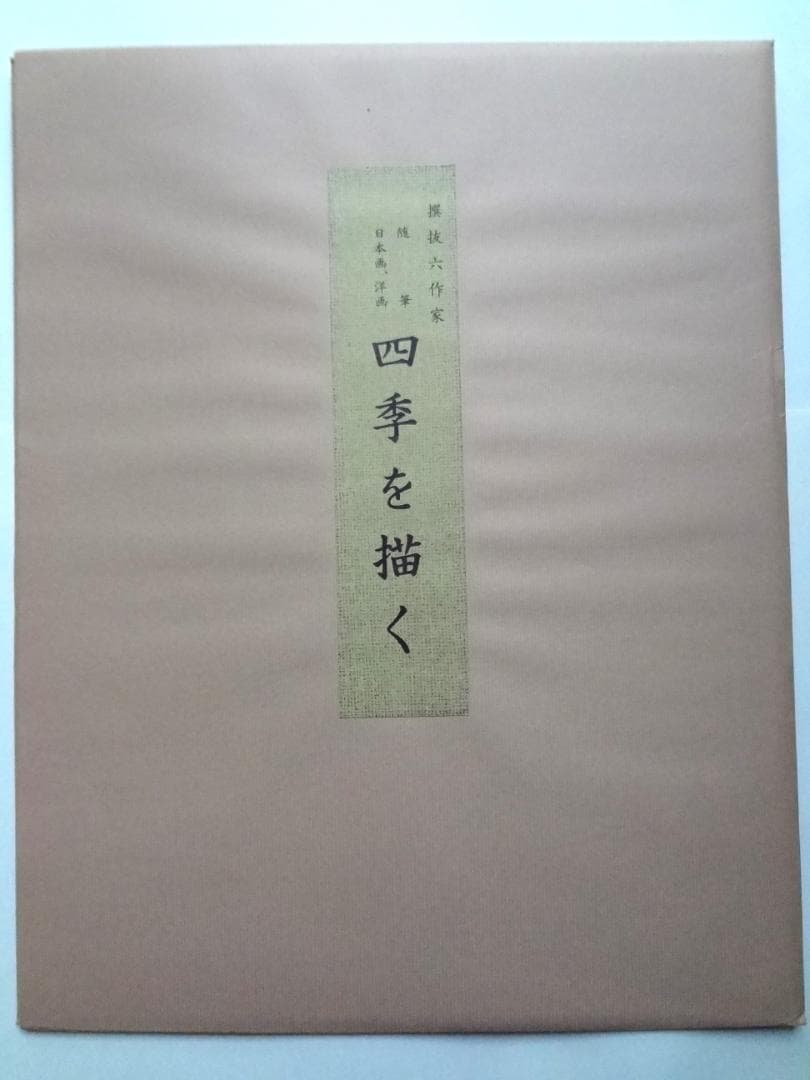 撰抜六作家
随筆
日本画、洋画
四季を描く